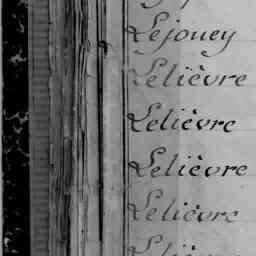 Lejouey
Lelièvre
Lelièvre
Lelièvre
Lelièvre